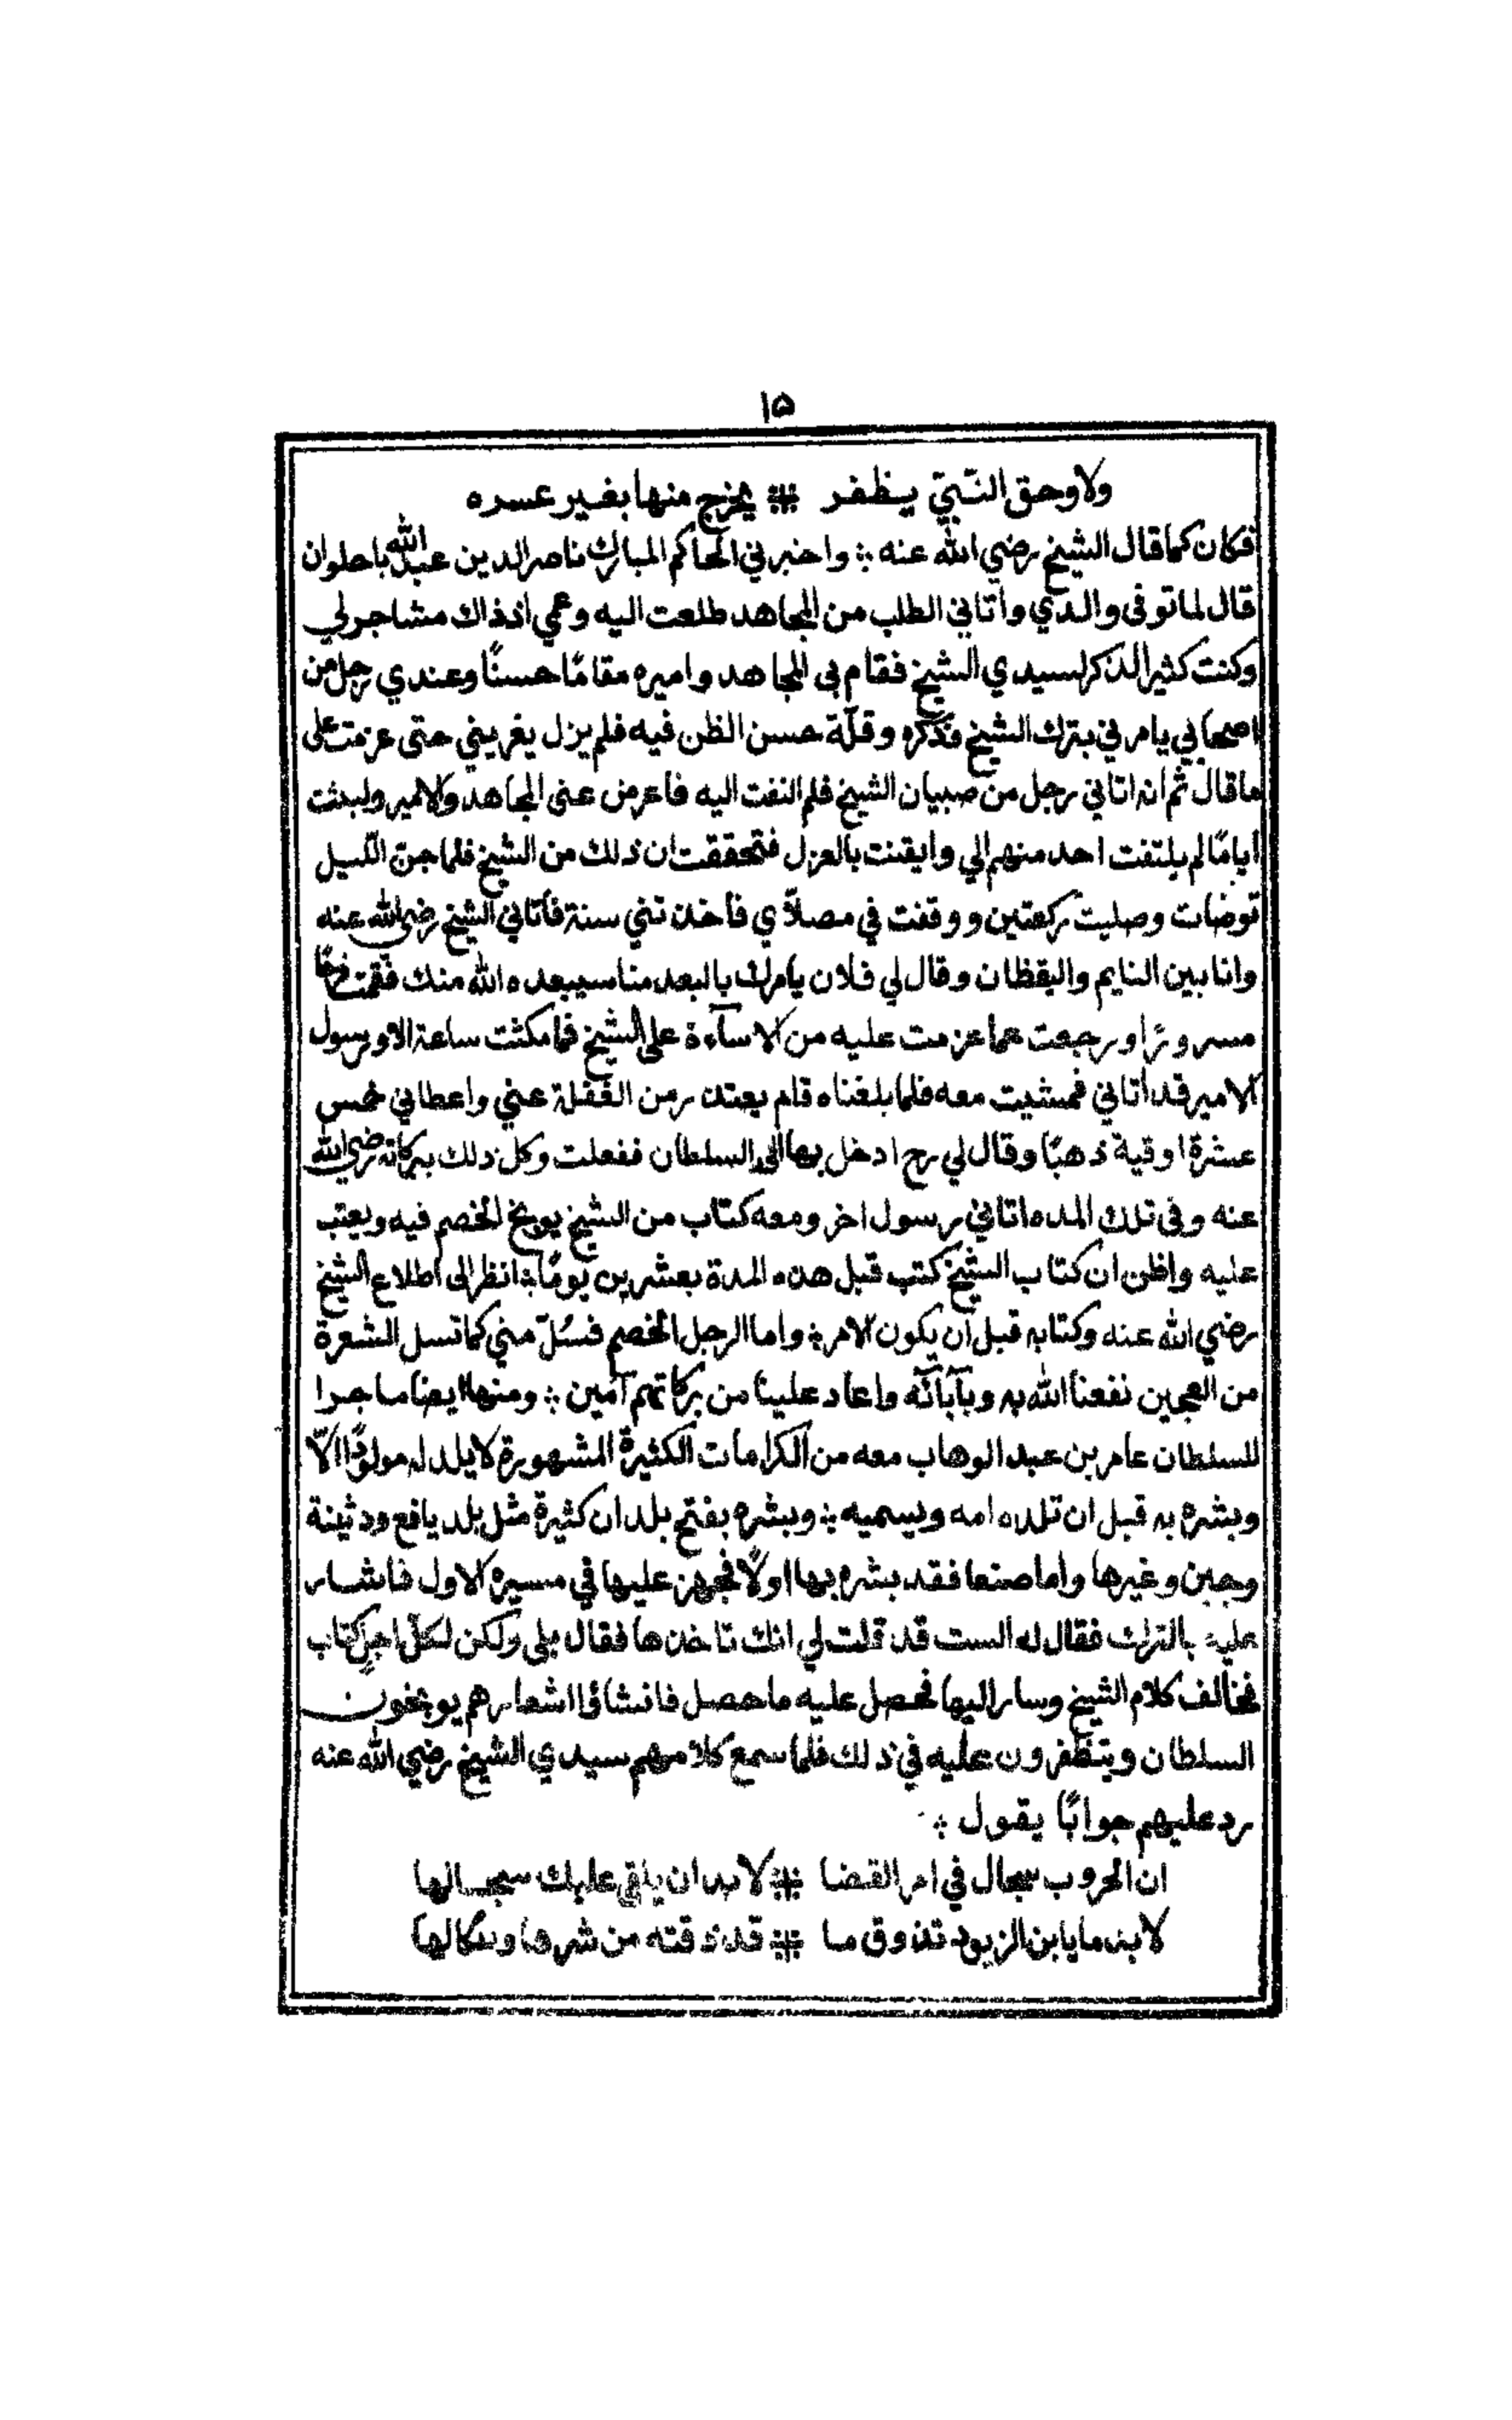 ١٥
ولا وحق النّبيّ يظفر ⁂ يخرج منها بغير عسره
فكان كما قال الشيخ رضي الله عنه ؞ واخبرني الحاكم المبارك ناصر الدين عبد الله باحلوان
قال لما توفى والدي وأتاني الطلب من المجاهد طلعت اليه وعمي اذ ذاك مشاجر لي
وكنت كثير الذكر لسيدي الشيخ فقام بي المجاهد واميره مقامًا حسنًا وعندي رجل من
اصحابي يامرني بترك الشيخ وذكره وقلّة حسن الظن فيه فلم يزل يغريني حتى عزمت على
ما قال ثم انه اتاني رجل من صبيان الشيخ فلم التفت اليه فاعرض عنى المجاهد والامير ولبثت
أيامًا لم يلتفت احد منهم الي وايقنت بالعزل فتحققت ان ذلك من الشيخ فلما جنّ اللّيل
توضات وصليت ركعتين ووقفت في مصلاّي فأخذتني سنة فأتاني الشيخ رضي الله عنه
وانا بين النايم واليقظان وقال لي فلان يامرك بالبعد منا سيبعده الله منك فقمت فرحًا
مسرورًا ورجعت عما عزمت عليه من الاسآءة على الشيخ فما مكثت ساعة الا ورسول
الامير قد أتاني فمشيت معه فلما بلغناه قام يعتذر من الغفلة عني واعطاني خمس
عشرة اوقية ذهبًا وقال لي رح ادخل بها الى السلطان ففعلت وكل ذلك ببركاته رضي الله
عنه وفى تلك المده اتاني رسول اخر ومعه كتاب من الشيخ يوبخ الخصم فيه ويعتب
عليه واظن ان كتاب الشيخ كتب قبل هذه المدة بعشرين يومًا ؞ انظر الى اطلاع الشيخ
رضي الله عنه وكتابه قبل أن يكون الامر ؞ واما الرجل الخصم فسُلّ مني كما تسل الشعرة
من العجين نفعنا الله به وبآبائه واعاد علينا من بركاتهم آمين ؞ ومنها ايضا ما جرا
للسلطان عامر بن عبد الوهاب معه من الكرامات الكثيرة المشهورة لا يلد له مولودًا الّا
وبشره به قبل ان تلده امه ويسميه ؞ وبشره بفتح بلدان كثيرة مثل بلد يافع ودثينة
وجبن وغيرها وأما صنعا فقد بشره بها اولًا فجهز عليها في مسيره الاول فاشار
عليه بالترك فقال له الست قد قلت لي انك تاخذها فقال بلى ولكن لكلّ اجل كتاب
فخالف كلام الشيخ وسار اليها فحصل عليه ما حصل فانشاؤا اشعارهم يوبخون
السلطان ويتظفرون عليه في ذلك فلما سمع كلامهم سيدي الشيخ رضي الله عنه
رد عليهم جوابًا يقول ؞
ان الحروب سجال في امر القضا ⁂ لا بد ان ياتي عليك سجالها
لا بد ما يا بن الزيود تذوق ما ⁂ قد ذقته من شرها ونكالها